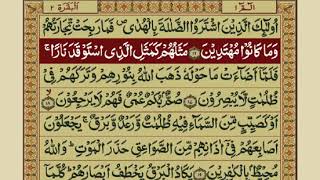 البقرة ٢
الٓمّٓ ١
اُولٰٓئِكَ الَّذِيْنَ اشْتَرَوُا الضَّلٰلَةَ بِالْهُدٰى ۪ فَمَا رَبِحَتْ تِّجَارَتُهُمْ
وَمَا كَانُوْا مُهْتَدِيْنَ ﴿۱۶﴾ مَثَلُهُمْ كَمَثَلِ الَّذِى اسْتَوْقَدَ نَارًا ۚ
فَلَمَّاۤ اَضَآءَتْ مَا حَوْلَهٗ ذَهَبَ اللّٰهُ بِنُوْرِهِمْ وَتَرَكَهُمْ فِىْ
ظُلُمٰتٍ لَّا يُبْصِرُوْنَ ﴿۱۷﴾ صُمٌّۢ بُكْمٌ عُمْىٌ فَهُمْ لَا يَرْجِعُوْنَ ﴿۱۸﴾
اَوْ كَصَيِّبٍ مِّنَ السَّمَآءِ فِيْهِ ظُلُمٰتٌ وَّرَعْدٌ وَّبَرْقٌ ۚ يَجْعَلُوْنَ
اَصَابِعَهُمْ فِىْۤ اٰذَانِهِمْ مِّنَ الصَّوَاعِقِ حَذَرَ الْمَوْتِ ؕ وَاللّٰهُ
مُحِيْطٌۢ بِالْكٰفِرِيْنَ ﴿۱۹﴾ يَكَادُ الْبَرْقُ يَخْطَفُ اَبْصَارَهُمْ ؕ كُلَّمَاۤ